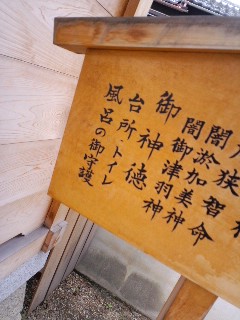 狭智命
闇淤加美神
闇御津羽神
御神徳
台所・トイレ
風呂の御守護